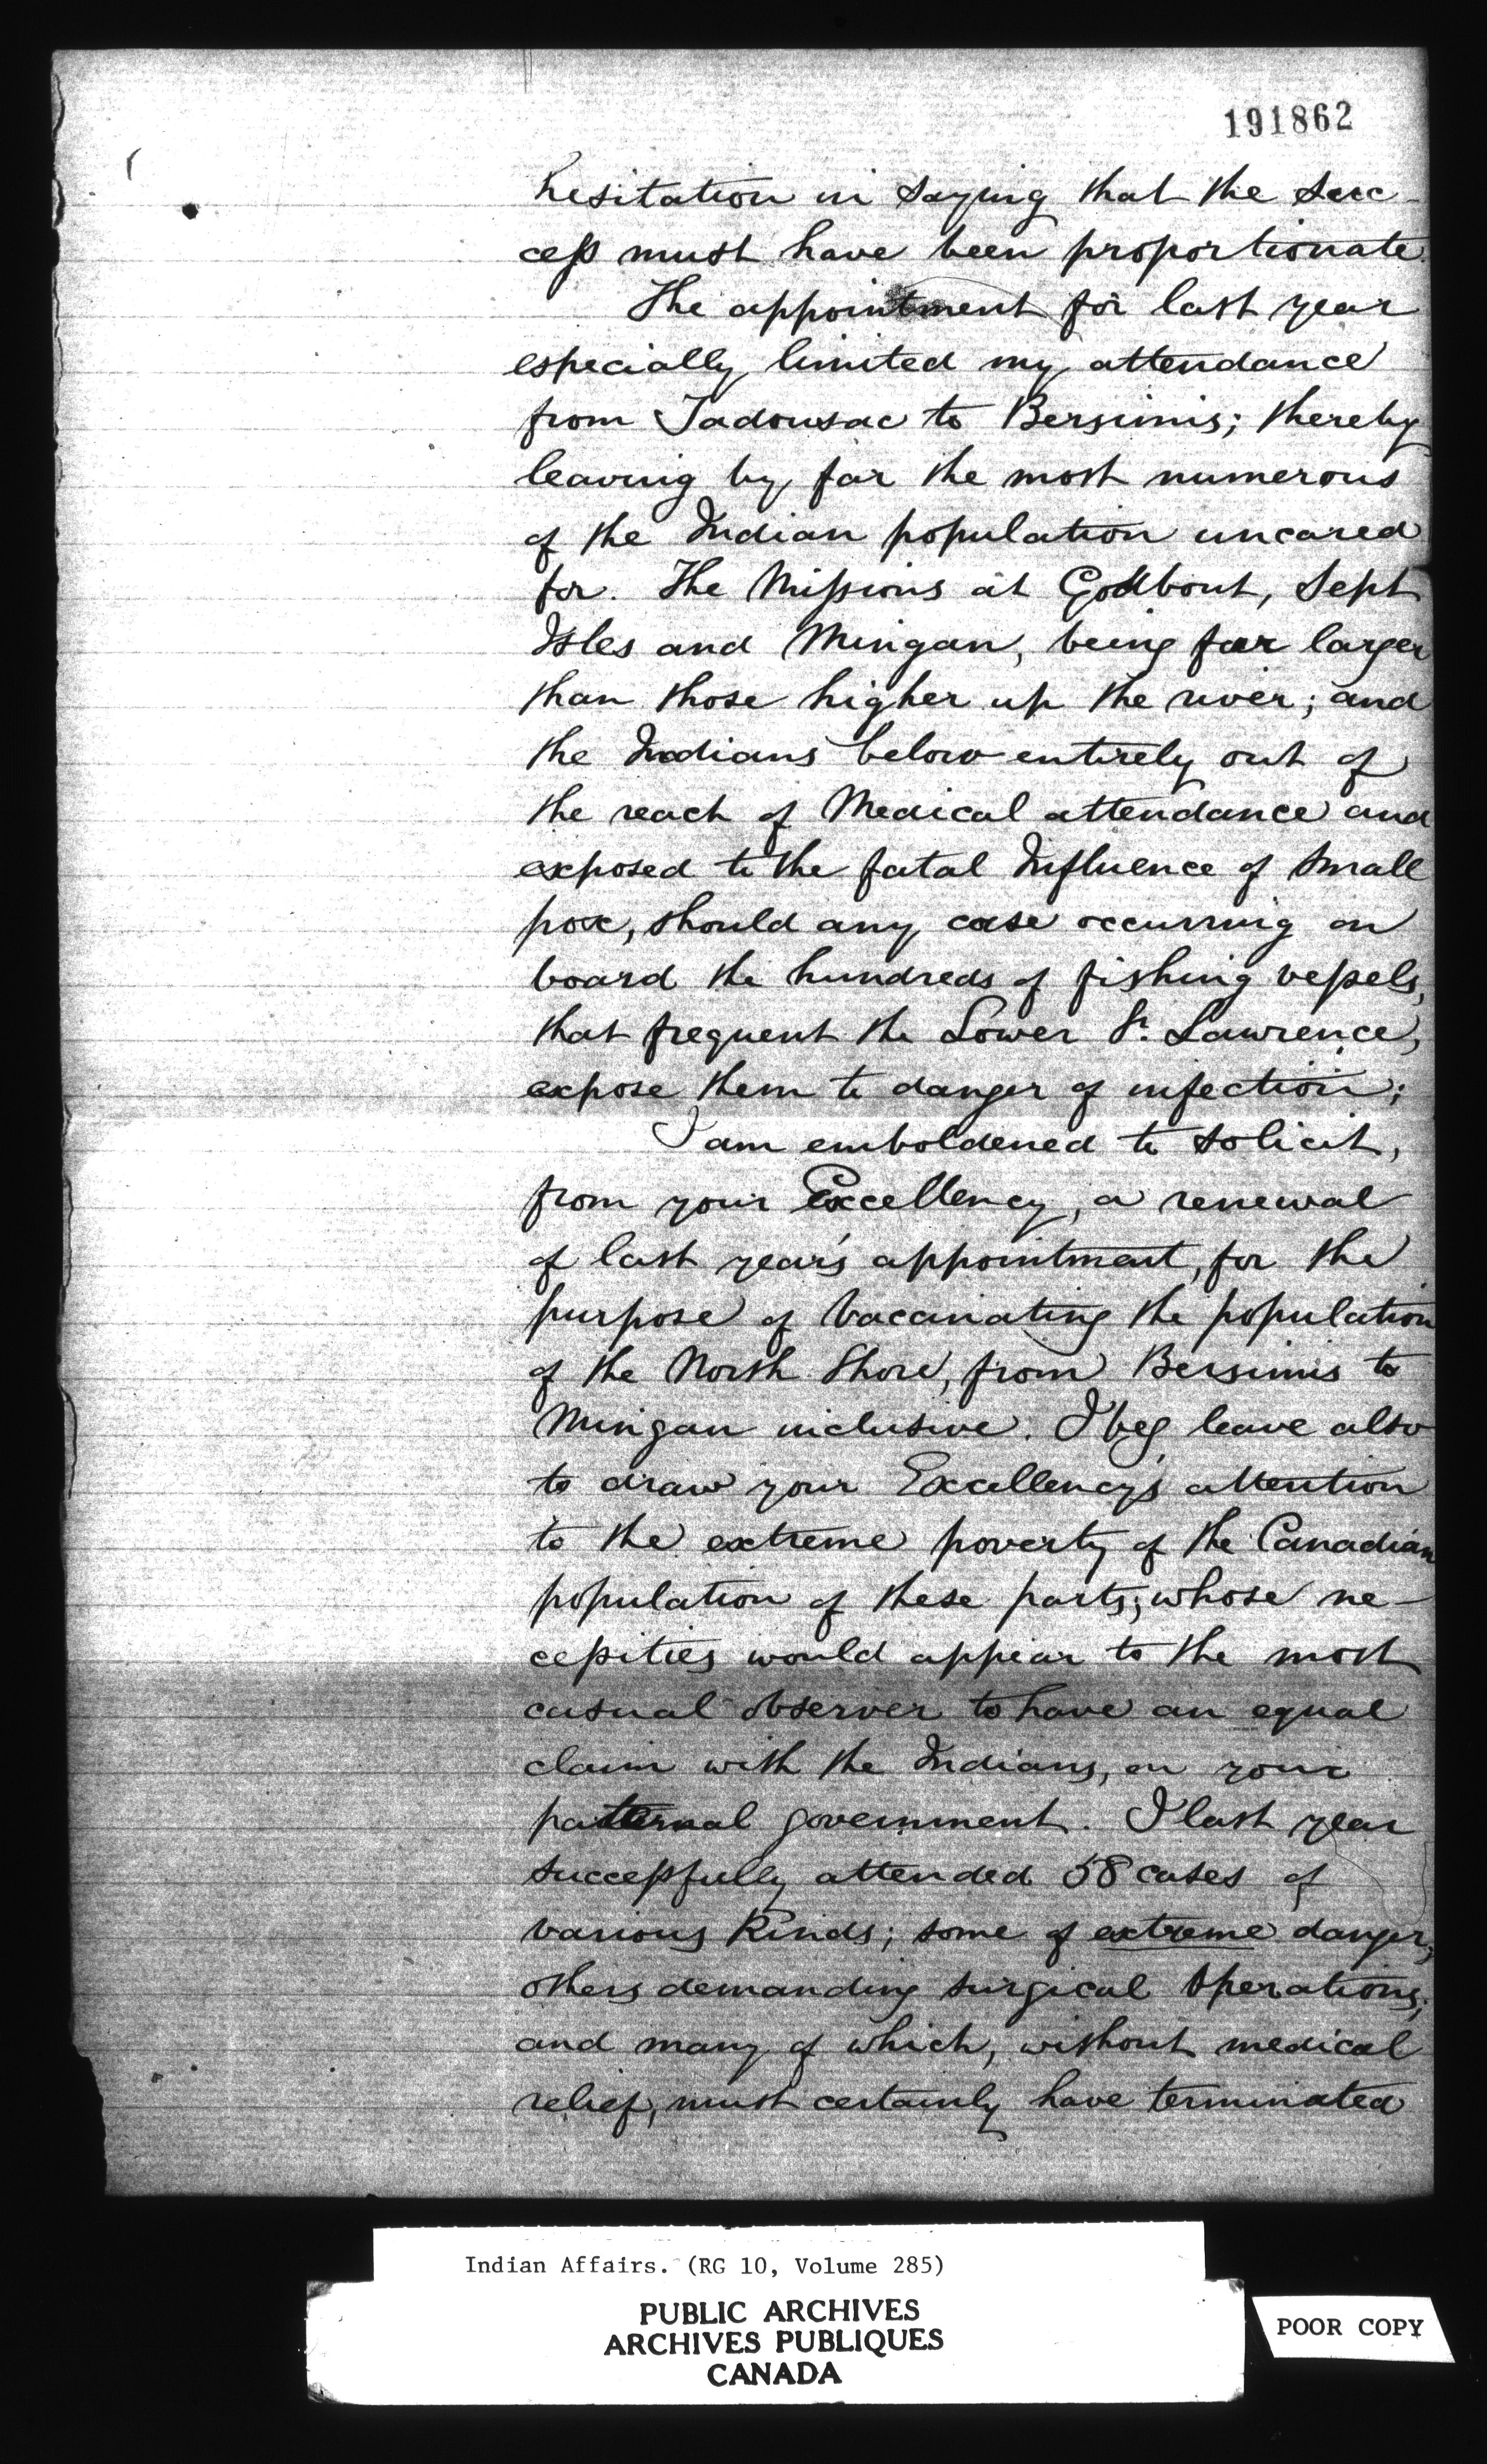 191862
hesitation in saying that the suc-
cess must have been proportionate.
The appointment for last year
especially limited my attendance
from Tadousac to Bersimis; thereby
leaving by far the most numerous
of the Indian population uncared
for. The Missions at Godbout, Sept
Isles and Mingan, being far larger
than those higher up the river; and
the Indians below entirely out of
the reach of Medical attendance and
exposed to the fatal Influence of Small
pox, should any case occurring on
board the hundreds of fishing vessels,
that frequent the Lower St. Lawrence,
expose them to danger of infection;
I am emboldened to solicit,
from your Excellency, a renewal
of last year's appointment, for the
purpose of Vaccinating the population
of the North Shore, from Bersimis to
Mingan inclusive. I beg leave also
to draw your Excellency's attention
to the extreme poverty of the Canadian
population of these parts; whose ne-
cessities would appear to the most
casual observer to have an equal
claim with the Indians, on your
paternal government. I last year
successfully attended 58 cases of
various Kinds; some of extreme danger,
others demanding surgical Operations;
and many of which, without medical
relief, must certainly have terminated
Indian Affairs. (RG 10, Volume 285)
PUBLIC ARCHIVES
ARCHIVES PUBLIQUES
CANADA
POOR COPY